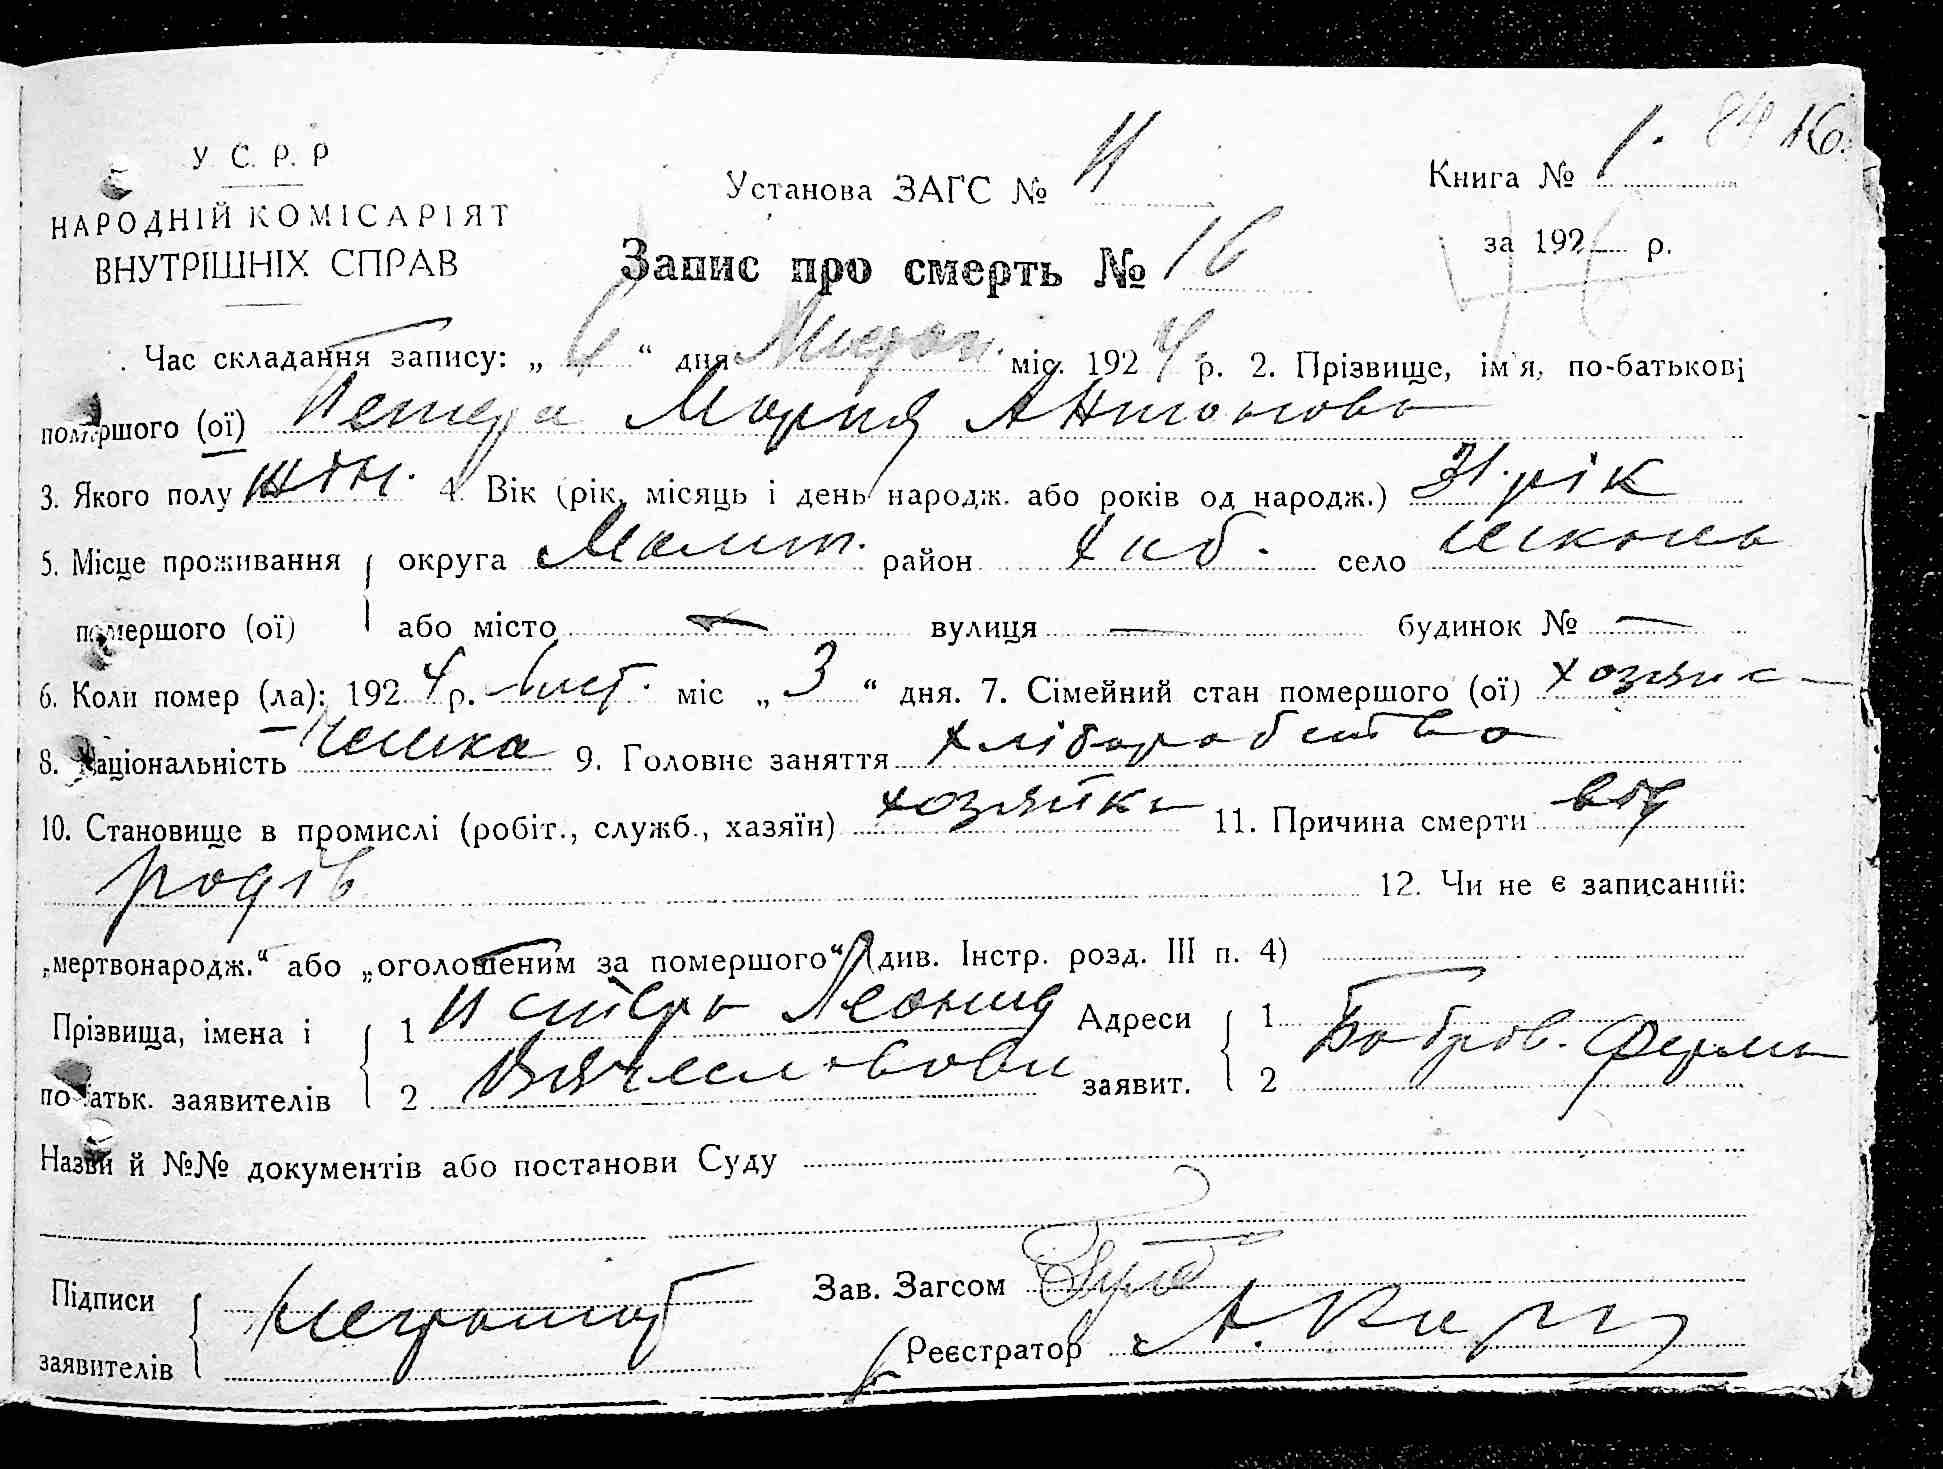 1. 84 16.
У. С. Р. Р
Установа ЗАГС № 4
Книга №
НАРОДНІЙ КОМІСАРІЯТ
ВНУТРІШНІХ СПРАВ
за 192 р.
Запис про смерть № 16
Час складання запису: „ 4 “ дня Листоп. міс. 1924 р. 2. Прізвище, ім'я, по-батькові
помершого (ої) Мария Антоновa
3. Якого полу жін. 4. Вік (рік, місяць і день народж. або років од народж.) 31 рік
5. Місце проживання округа район село
помершого (ої) або місто — вулиця — будинок № —
6. Коли помер (ла): 1924 р. Лист. міс „ 3 “ дня. 7. Сімейний стан помершого (ої)
8. Національність Чешка 9. Головне заняття хліборобство
10. Становище в промислі (робіт., служб., хазяїн) хозяйка 11. Причина смерти від
родів 12. Чи не є записаний:
„мертвонародж.“ або „оголошеним за помершого“ (див. Інстр. розд. III п. 4)
Прізвища, імена і 1 Леонид Адреси 1 Бобров. Ферма
по батьк. заявителів 2 заявит. 2
Назви й №№ документів або постанови Суду
Підписи Неграмот Зав. Загсом
заявителів Реєстратор